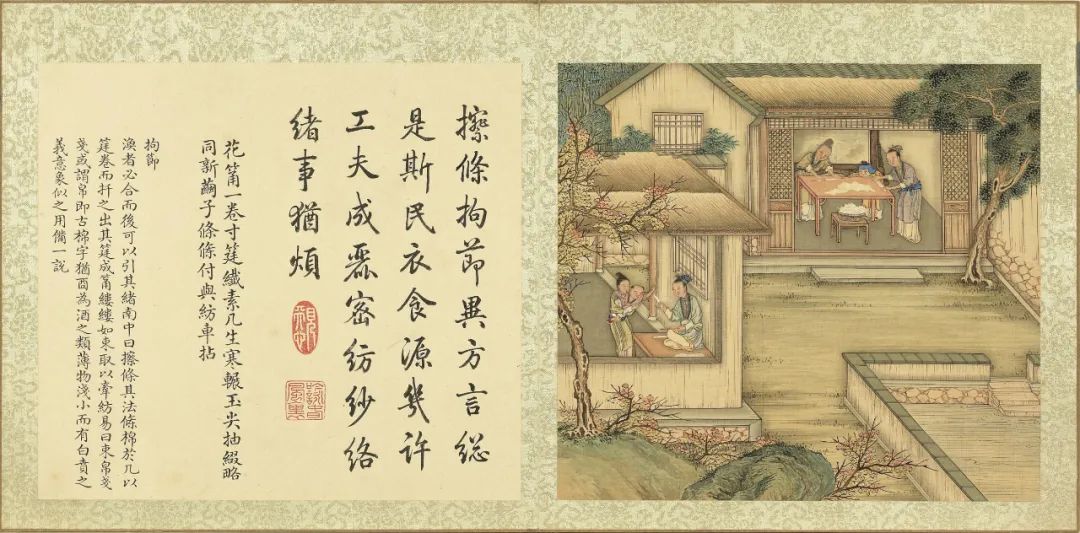 擦條拘節異方言総
是斯民衣食源幾許
工夫成麗密紡紗絡
緒事猶煩
花筩一卷寸筳纖素几生寒輾玉尖抽綴略
同新繭子條條付與紡車拈
拘節
渙者必合而後可以引其緒南中曰擦條其法條棉於几以
筳卷而扞之出其筳成筩縷縷如束取以牽紡易曰束帛戔
戔或謂帛即古棉字猶酉為酒之類薄物淺小而有白賁之
義意象似之用備一說